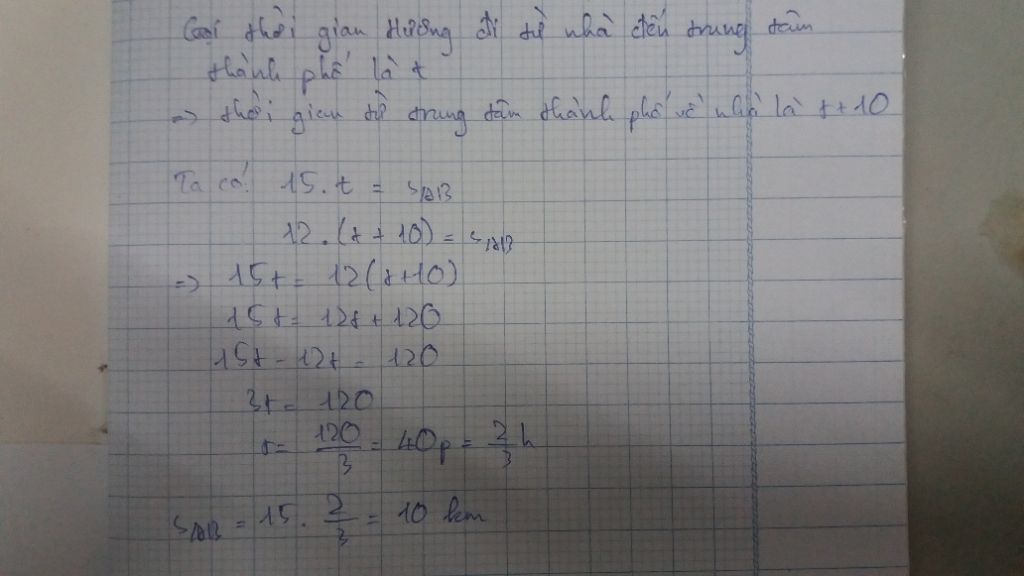 Gọi thời gian Hương đi từ nhà đến trung tâm
thành phố là t
=> thời gian từ trung tâm thành phố về nhà là t+10
Ta có: 15.t = SAB
12.(t+10) = SAB
=> 15t = 12(t+10)
15t = 12t + 120
15t - 12t = 120
3t = 120
t = 120/3 = 40p = 2/3 h
SAB = 15. 2/3 = 10 km